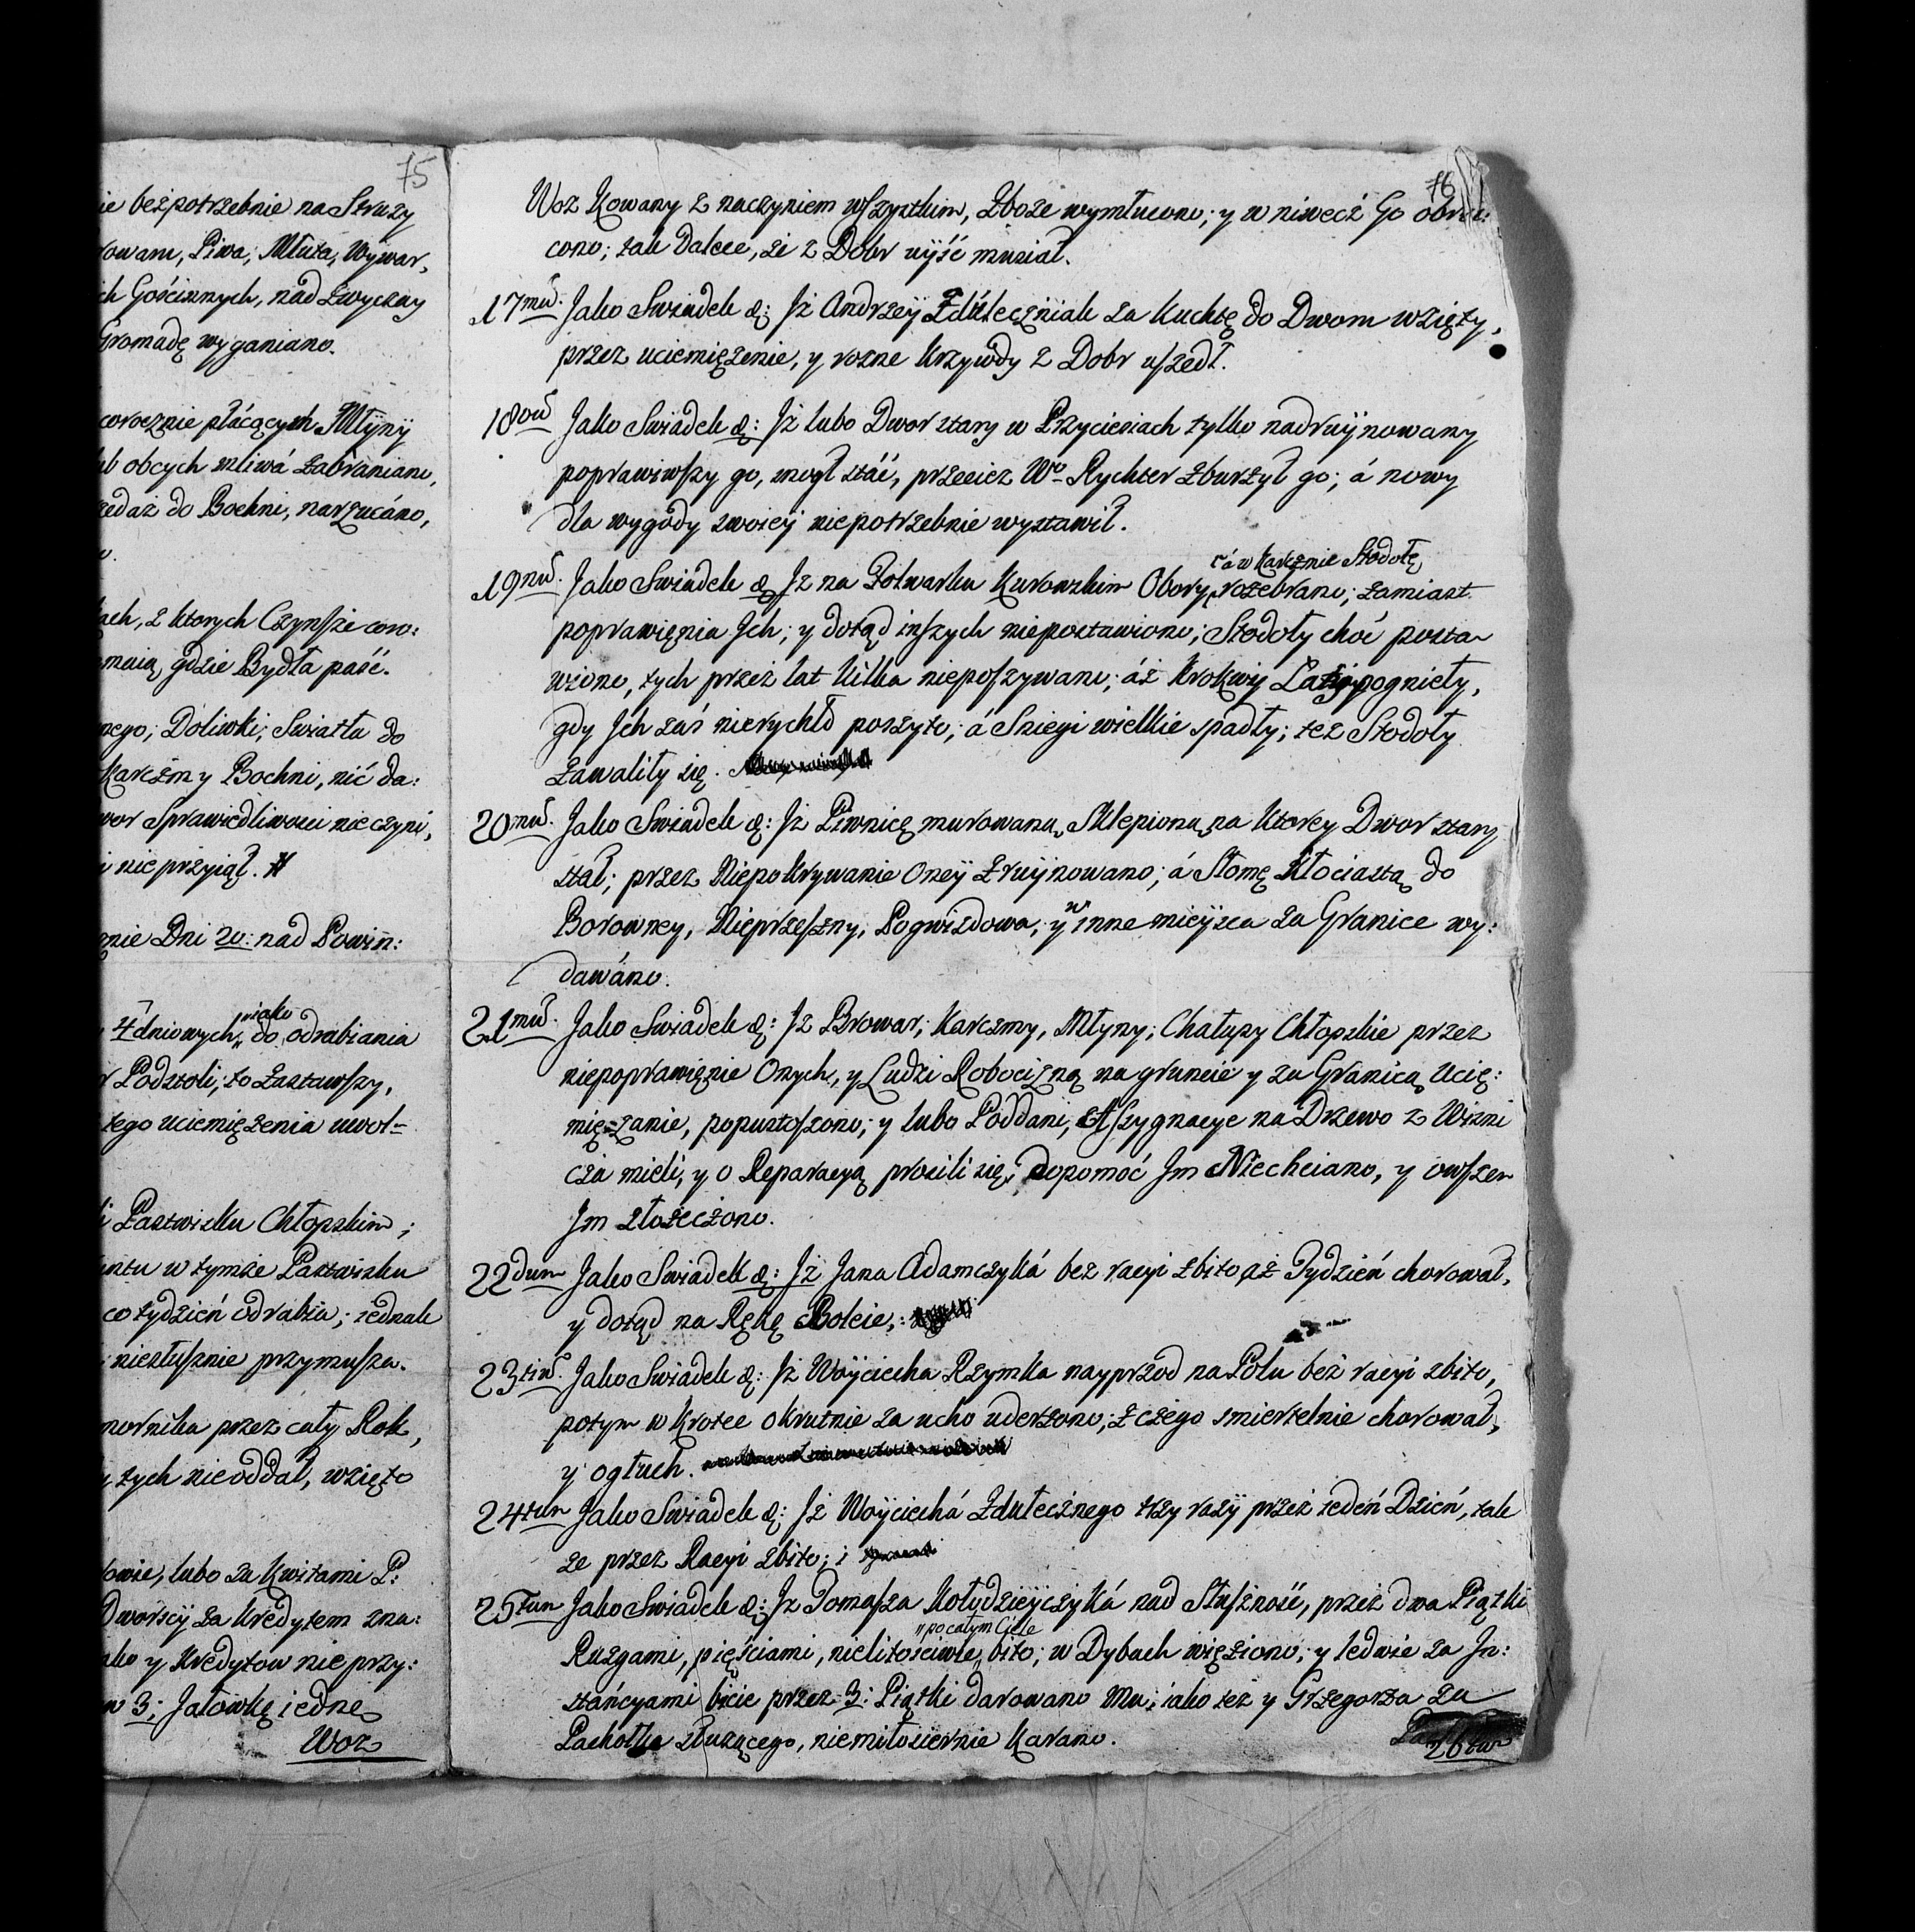 75
ie bezpotrzebnie na Struży
rowaru, Piwa, Młuta, Wywar,
ch Gościnnych, nad Zwyczay
Gromadę wyganiano.
corocznie płacących Młyny
ub obcych mliwá zabraniano,
zedaż do Bochni, narzucáno,
ach, z ktorych Czynsze coro:
maią, gdzie Bydła paść.
nego, Doliwki, Swiatła do
Karczmy Bochni, nić da:
wor Sprawiedliwosci nie czyni,
i nie przyiął.
nie Dni 20: nad Powiñ:
4 dniowych, iako do odrabiania
r Podstoli, to Zastawszy,
tego uciemiężenia uwol-
i Pastwisku Chłopskim;
untu w tymże Pastwisku
co tydzień odrabia; iednak
niesłusznie przymusza.
mornika przez cały Rok,
y tych nie oddał, wzięto
owie, lubo za Kwitami P:
Dworscy za Kredytem zna:
ako y Kredytow nie przy:
w 3: Jałowkę iednę
Woz
76
Woz Kowany z naczyniem wszystkim, Zboże wymłucono; y w niwecz Go obró:
cono; tak dalece, że z Dobr uyść musiał.
17mũ. Jako Swiadek &: Jż Andrzey Zdúłecźniak za Kuchtę do Dworu wzięty,
przez uciemiężenie, y rozne Krzywdy z Dobr uszedł.
18vũ Jako Swiadek &: Jż lubo Dwor stary w Przyciesiach tylko nadruynowany
poprawiwszy go, mogł stáć, przecież Wo Rychter zburzył go; á nowy
dla wygody swoiey niepotrzebnie wystawił.
19nũ. Jako Swiadek & Jż na Folwarku Kurowskim Obory, á w Karcżmie Stodołę rozebrano; zamiast
poprawięnia Jch; y dotąd inszych niepostawiono; Stodoły choć posta-
wiono, tych przez lat kilka nieposzywano; áż Krokwy Łaty pogniety,
gdy Jch zaś nierychło poszyto; á Sniegi wielkie spadły; też Stodoły
Zawaliły się.
20mũ. Jako Swiadek &: Jż Piwnicę murowaną, Sklepioną, na Ktorey Dwor stary
stał; przez Niepokrywanie Oney zruynowano; á Słomę Kłociastą do
Borowney, Nieprześzny, Pogwizdowa, y w inne mieysca za Granice wy:
dawáno.
21mũ. Jako Swiadek &: Jż Browar, Karczmy, Młyny, Chałupy Chłopskie przez
niepoprawięnie Onych, y Ludzi Robocizną na gruncie y za Granicą Ucię:
mięzanie, popustoszono; y lubo Poddani, Assygnacye na Drzewo z Wisni
cza mieli, y o Reparacyą prosili się, dopomoć Jm Niechciano, y owszem
Jm złożeczono.
22dum Jako Swiadek &: Jż Jana Adamczyká bez racyi zbito aż Tydzień chorował,
y dotąd na Rękę Boleie,:
23tiũ. Jako Swiadek &: Jż Woyciecha Rzymka nayprzod na Polu bez racyi zbito,
potym w Krotce okrutnie za ucho uderzono; z czego smiertelnie chorował,
y ogłuch.
24tum Jako Swiadek &: Jż Woyciechá Zdułecżnego trzy razy przez ieden Dzień, tak
ze przez Racyi zbito; i
25tum Jako Swiadek &: Jż Tomasza Kołydzieyczyká nad Słuszność, przez dwa Piątki
Ruzgami, pięściami, nielitościwie po całym Ciele bito; w Dybach więziono; y ledwie za Jn:
stáncyami bicie przez 3: Piątki darowano Mu; iako też y Grzegorza za
Pachołka służącego, niemiłosiernie Karano.
26tum